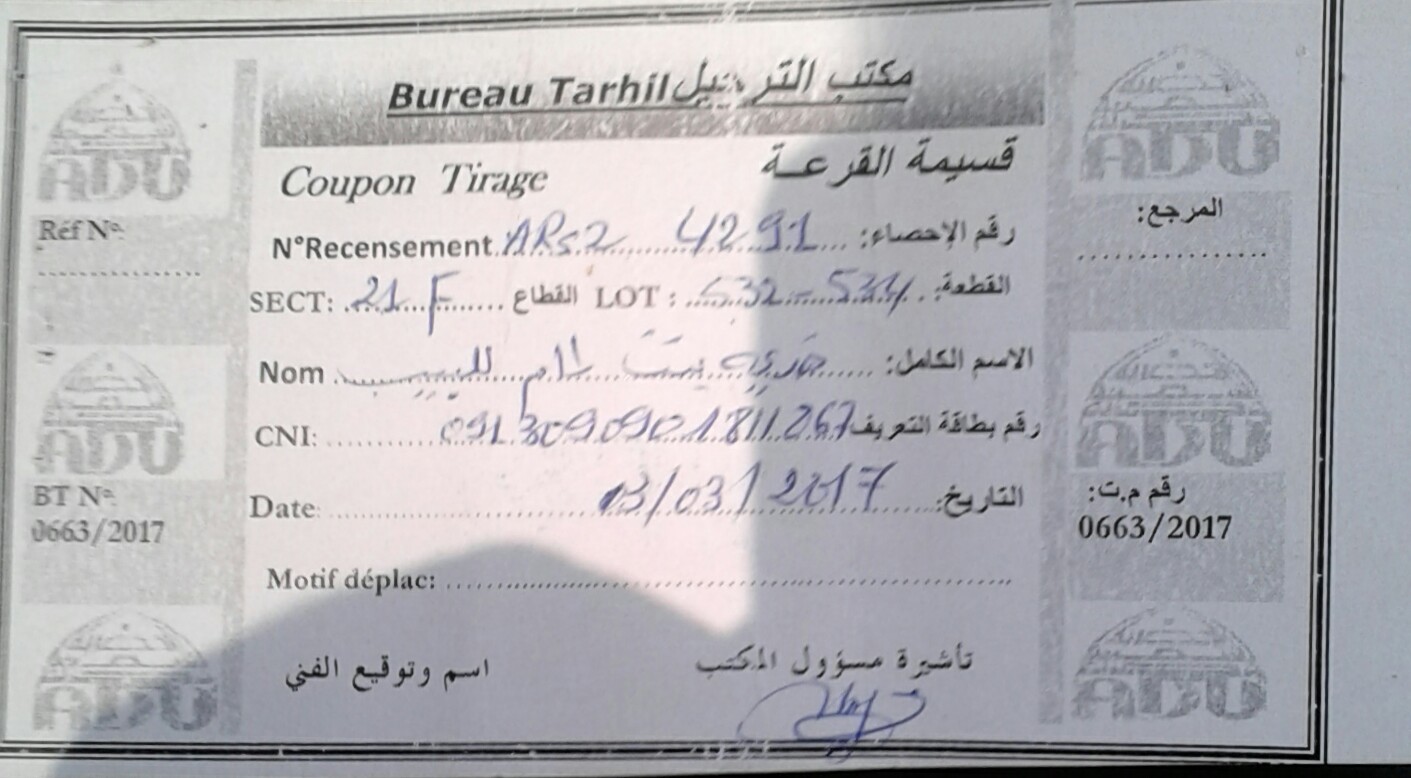 Bureau Tarhil مكتب الترحيل
Coupon Tirage قسيمة القرعة
N°Recensement. ARS2 4291 رقم الإحصاء:
SECT: 21 F القطاع LOT : 532-534 القطعة:
Nom بنت الاسم الكامل:
CNI: 0913090901811267 رقم بطاقة التعريف
Date: 13/03/2017 التاريخ:
Motif déplac:
اسم وتوقيع الفني تأشيرة مسؤول المكتب
ADU
Réf Nº:
ADU
BT Nº:
0663/2017
ADU
ADU
المرجع:
ADU
رقم م.ت:
0663/2017
ADU